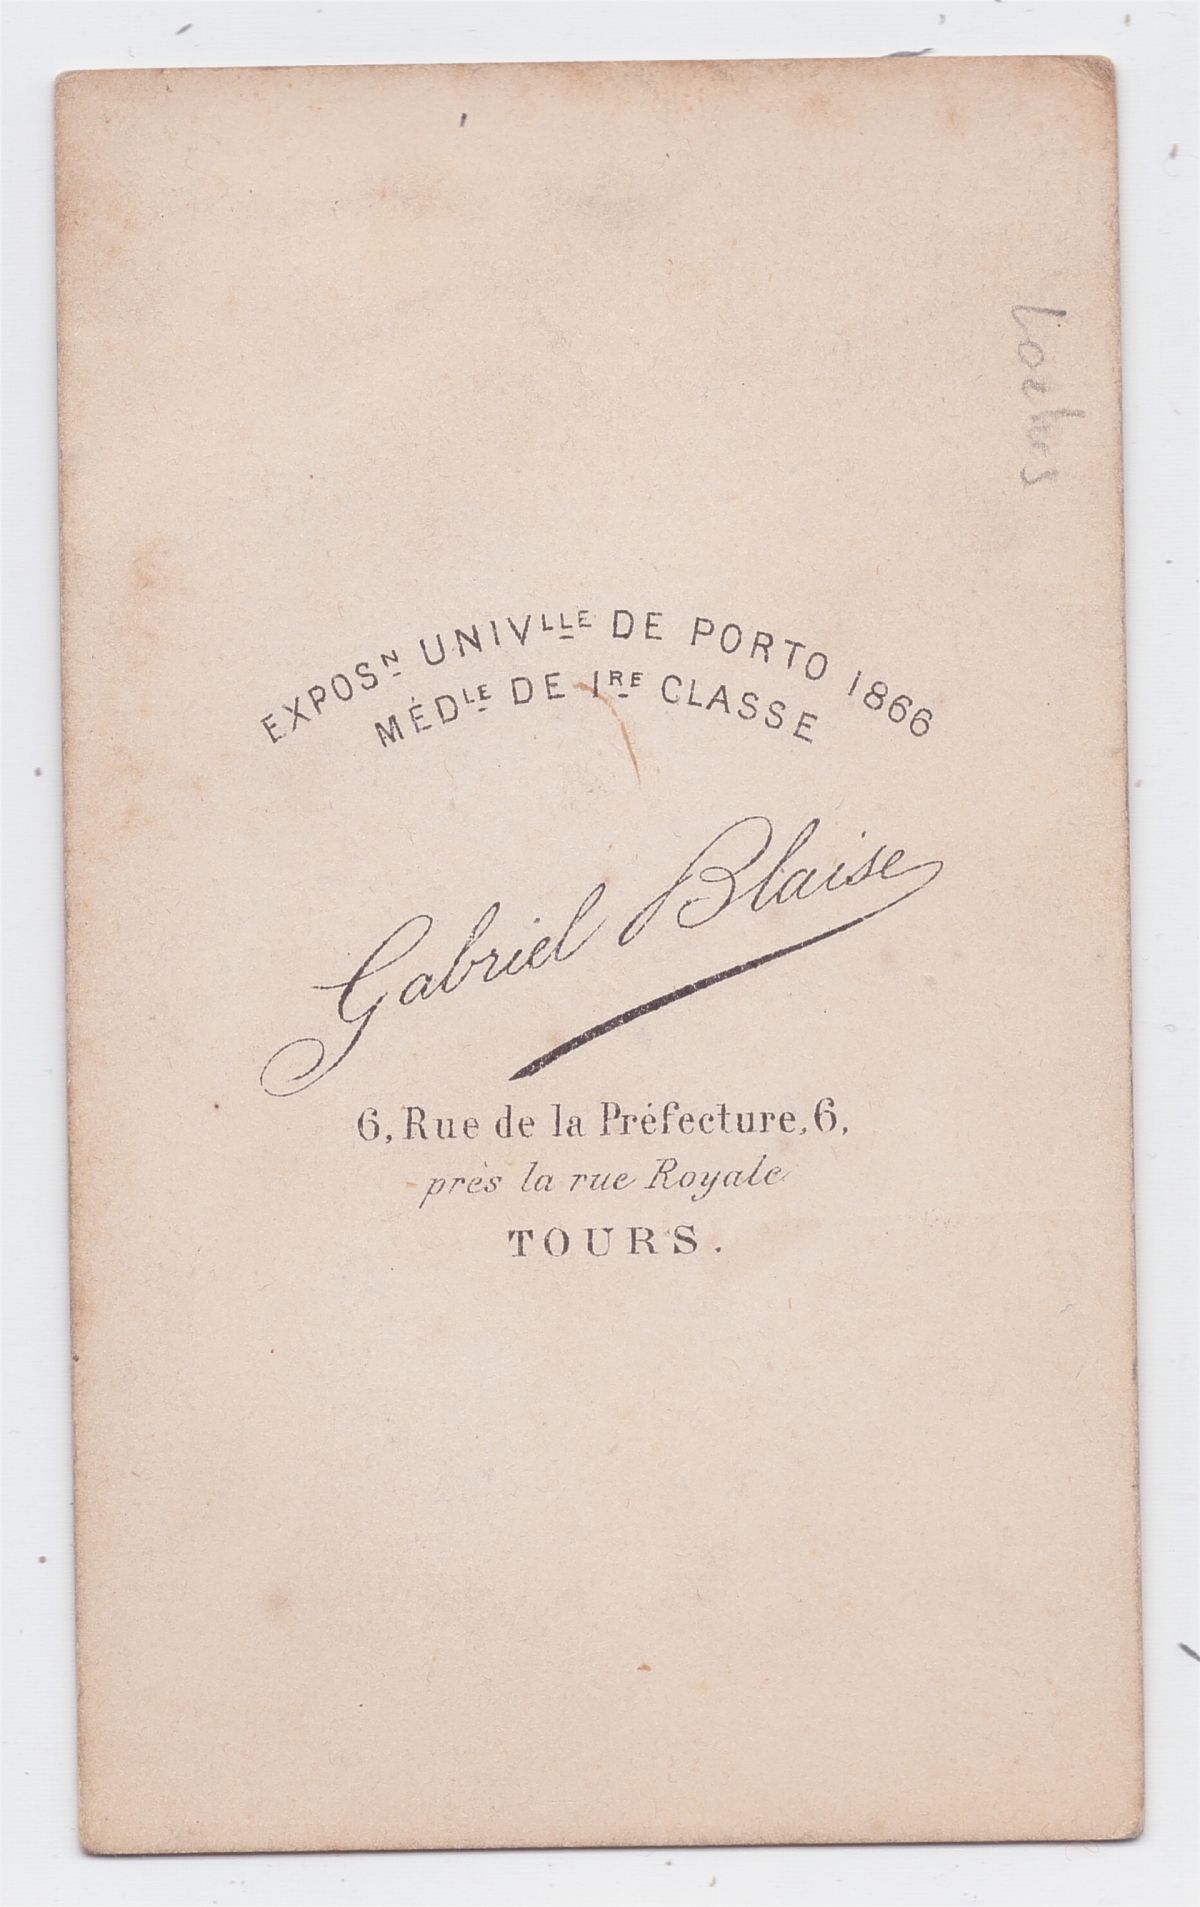 EXPOSN UNIVLLE DE PORTO 1866
MÉDLE DE 1RE CLASSE
Gabriel Blaise
6, Rue de la Préfecture, 6,
près la rue Royale
TOURS.